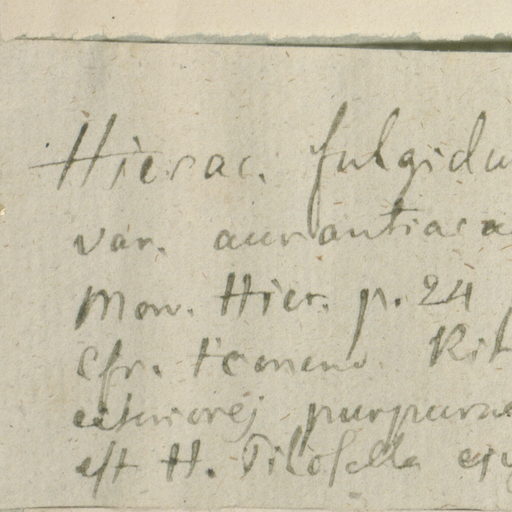 Hierac. fulgidu
var. aurantiaca
Mon. Hier. p. 24
Cfr.
exteriores purpurae
est H. Pilosella